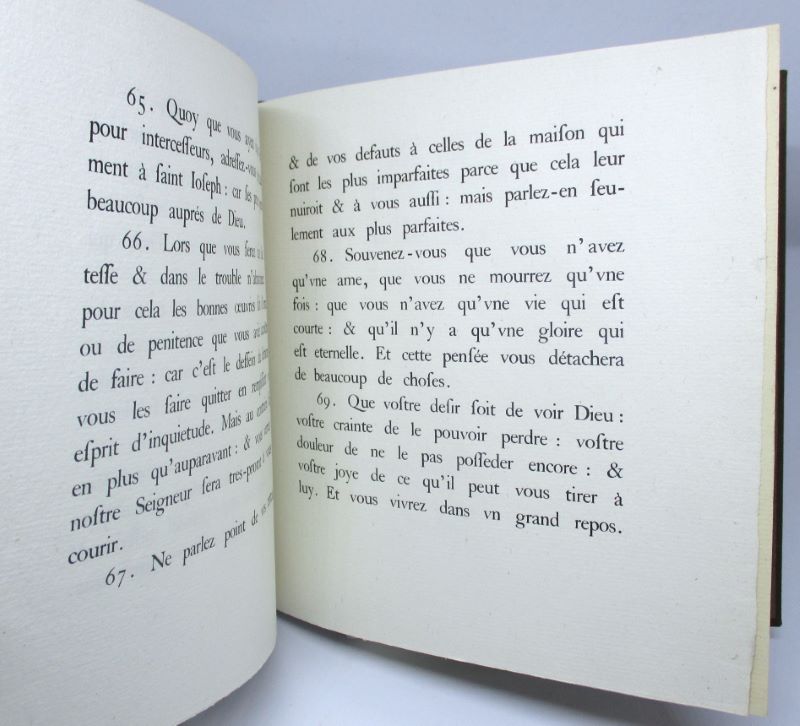 65. Quoy que vous
pour interceſſeurs, adreſſez-vous
ment à ſaint Ioſeph : car
beaucoup auprés de Dieu.
66. Lors que vous ſerez
teſſe & dans le trouble
pour cela les bonnes œuvres
ou de penitence que vous
de faire : car c'eſt le deſſein
vous les faire quitter en
eſprit d'inquietude. Mais au
en plus qu'auparavant : &
noſtre Seigneur ſera tres-pront à
courir.
67. Ne parlez point de
& de vos defauts à celles de la maiſon qui
ſont les plus imparfaites parce que cela leur
nuiroit & à vous auſſi : mais parlez-en ſeu-
lement aux plus parfaites.
68. Souvenez-vous que vous n'avez
qu'vne ame, que vous ne mourrez qu'vne
fois : que vous n'avez qu'vne vie qui eſt
courte : & qu'il n'y a qu'vne gloire qui
eſt eternelle. Et cette penſée vous détachera
de beaucoup de choſes.
69. Que voſtre deſir ſoit de voir Dieu :
voſtre crainte de le pouvoir perdre : voſtre
douleur de ne le pas poſſeder encore : &
voſtre joye de ce qu'il peut vous tirer à
luy. Et vous vivrez dans vn grand repos.